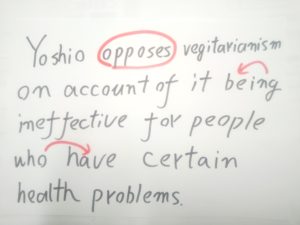 Yoshio opposes vegitarianism
on account of it being
ineffective for people
who have certain
health problems.